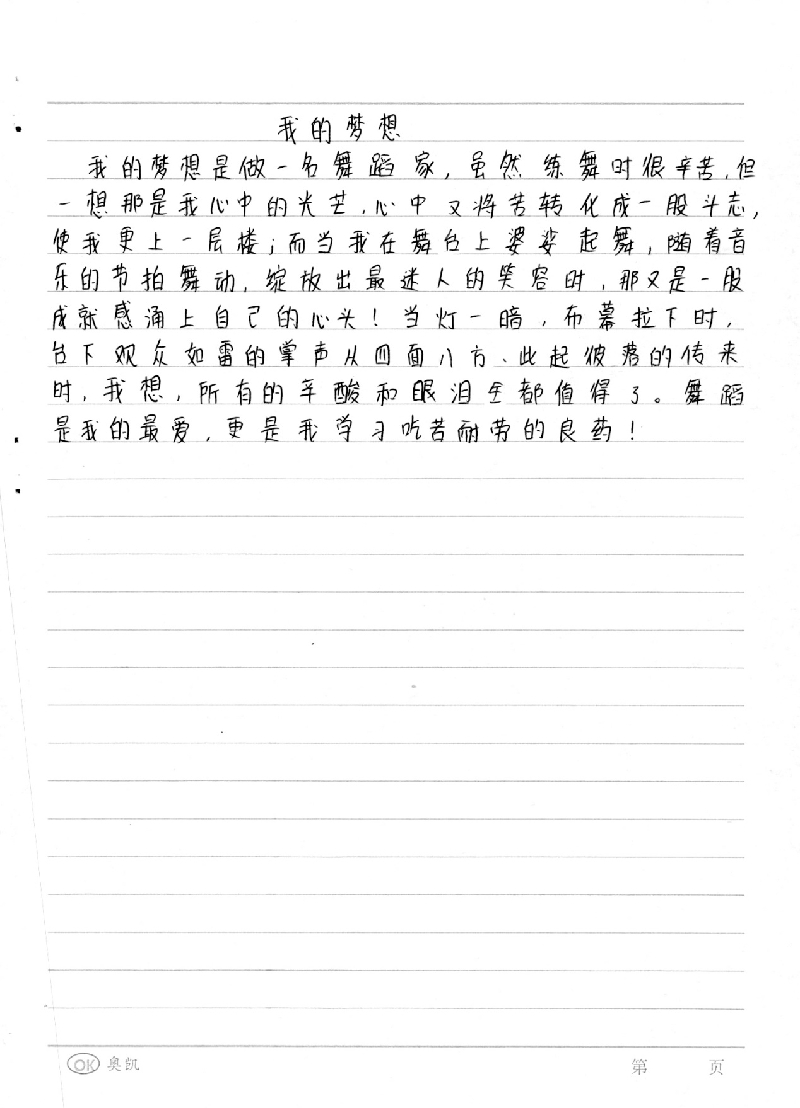 我的梦想
我的梦想是做一名舞蹈家，虽然练舞时很辛苦，但
一想那是我心中的光芒，心中又将苦转化成一股斗志，
使我更上一层楼；而当我在舞台上婆娑起舞，随着音
乐的节拍舞动，绽放出最迷人的笑容时，那又是一股
成就感涌上自己的心头！当灯一暗，布幕拉下时，
台下观众如雷的掌声从四面八方、此起彼落的传来
时，我想，所有的辛酸和眼泪全都值得了。舞蹈
是我的最爱，更是我学习吃苦耐劳的良药！
OK 奥凯 第 页